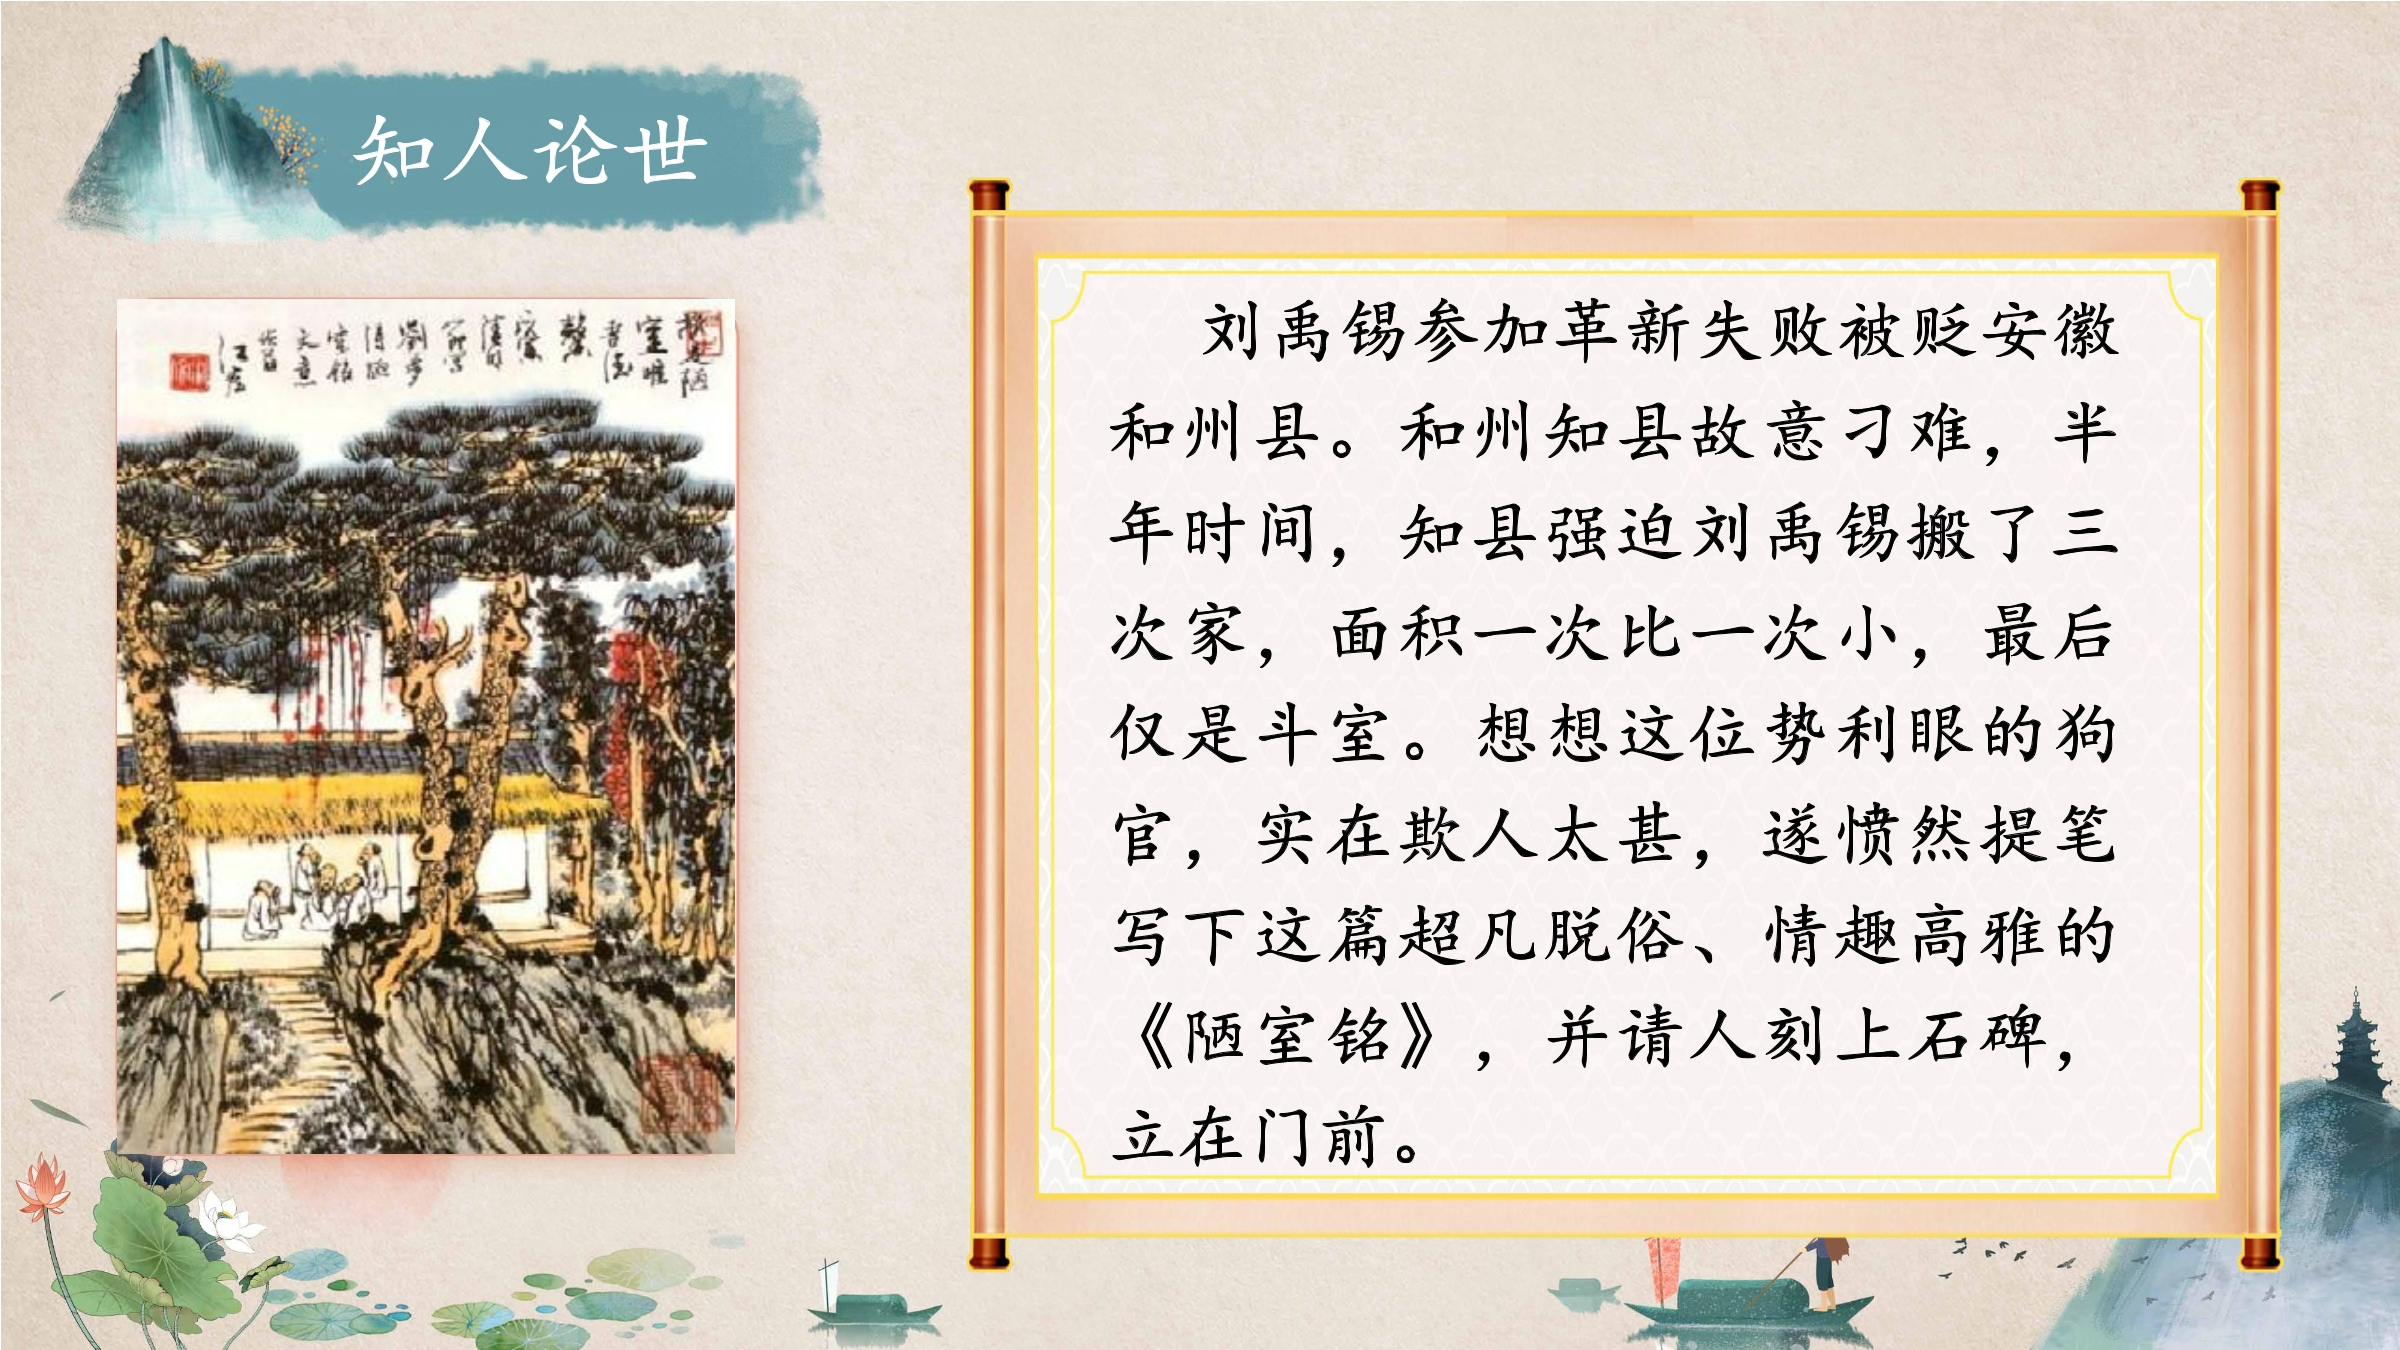 知人论世
刘禹锡参加革新失败被贬安徽
和州县。和州知县故意刁难，半
年时间，知县强迫刘禹锡搬了三
次家，面积一次比一次小，最后
仅是斗室。想想这位势利眼的狗
官，实在欺人太甚，遂愤然提笔
写下这篇超凡脱俗、情趣高雅的
《陋室铭》，并请人刻上石碑，
立在门前。